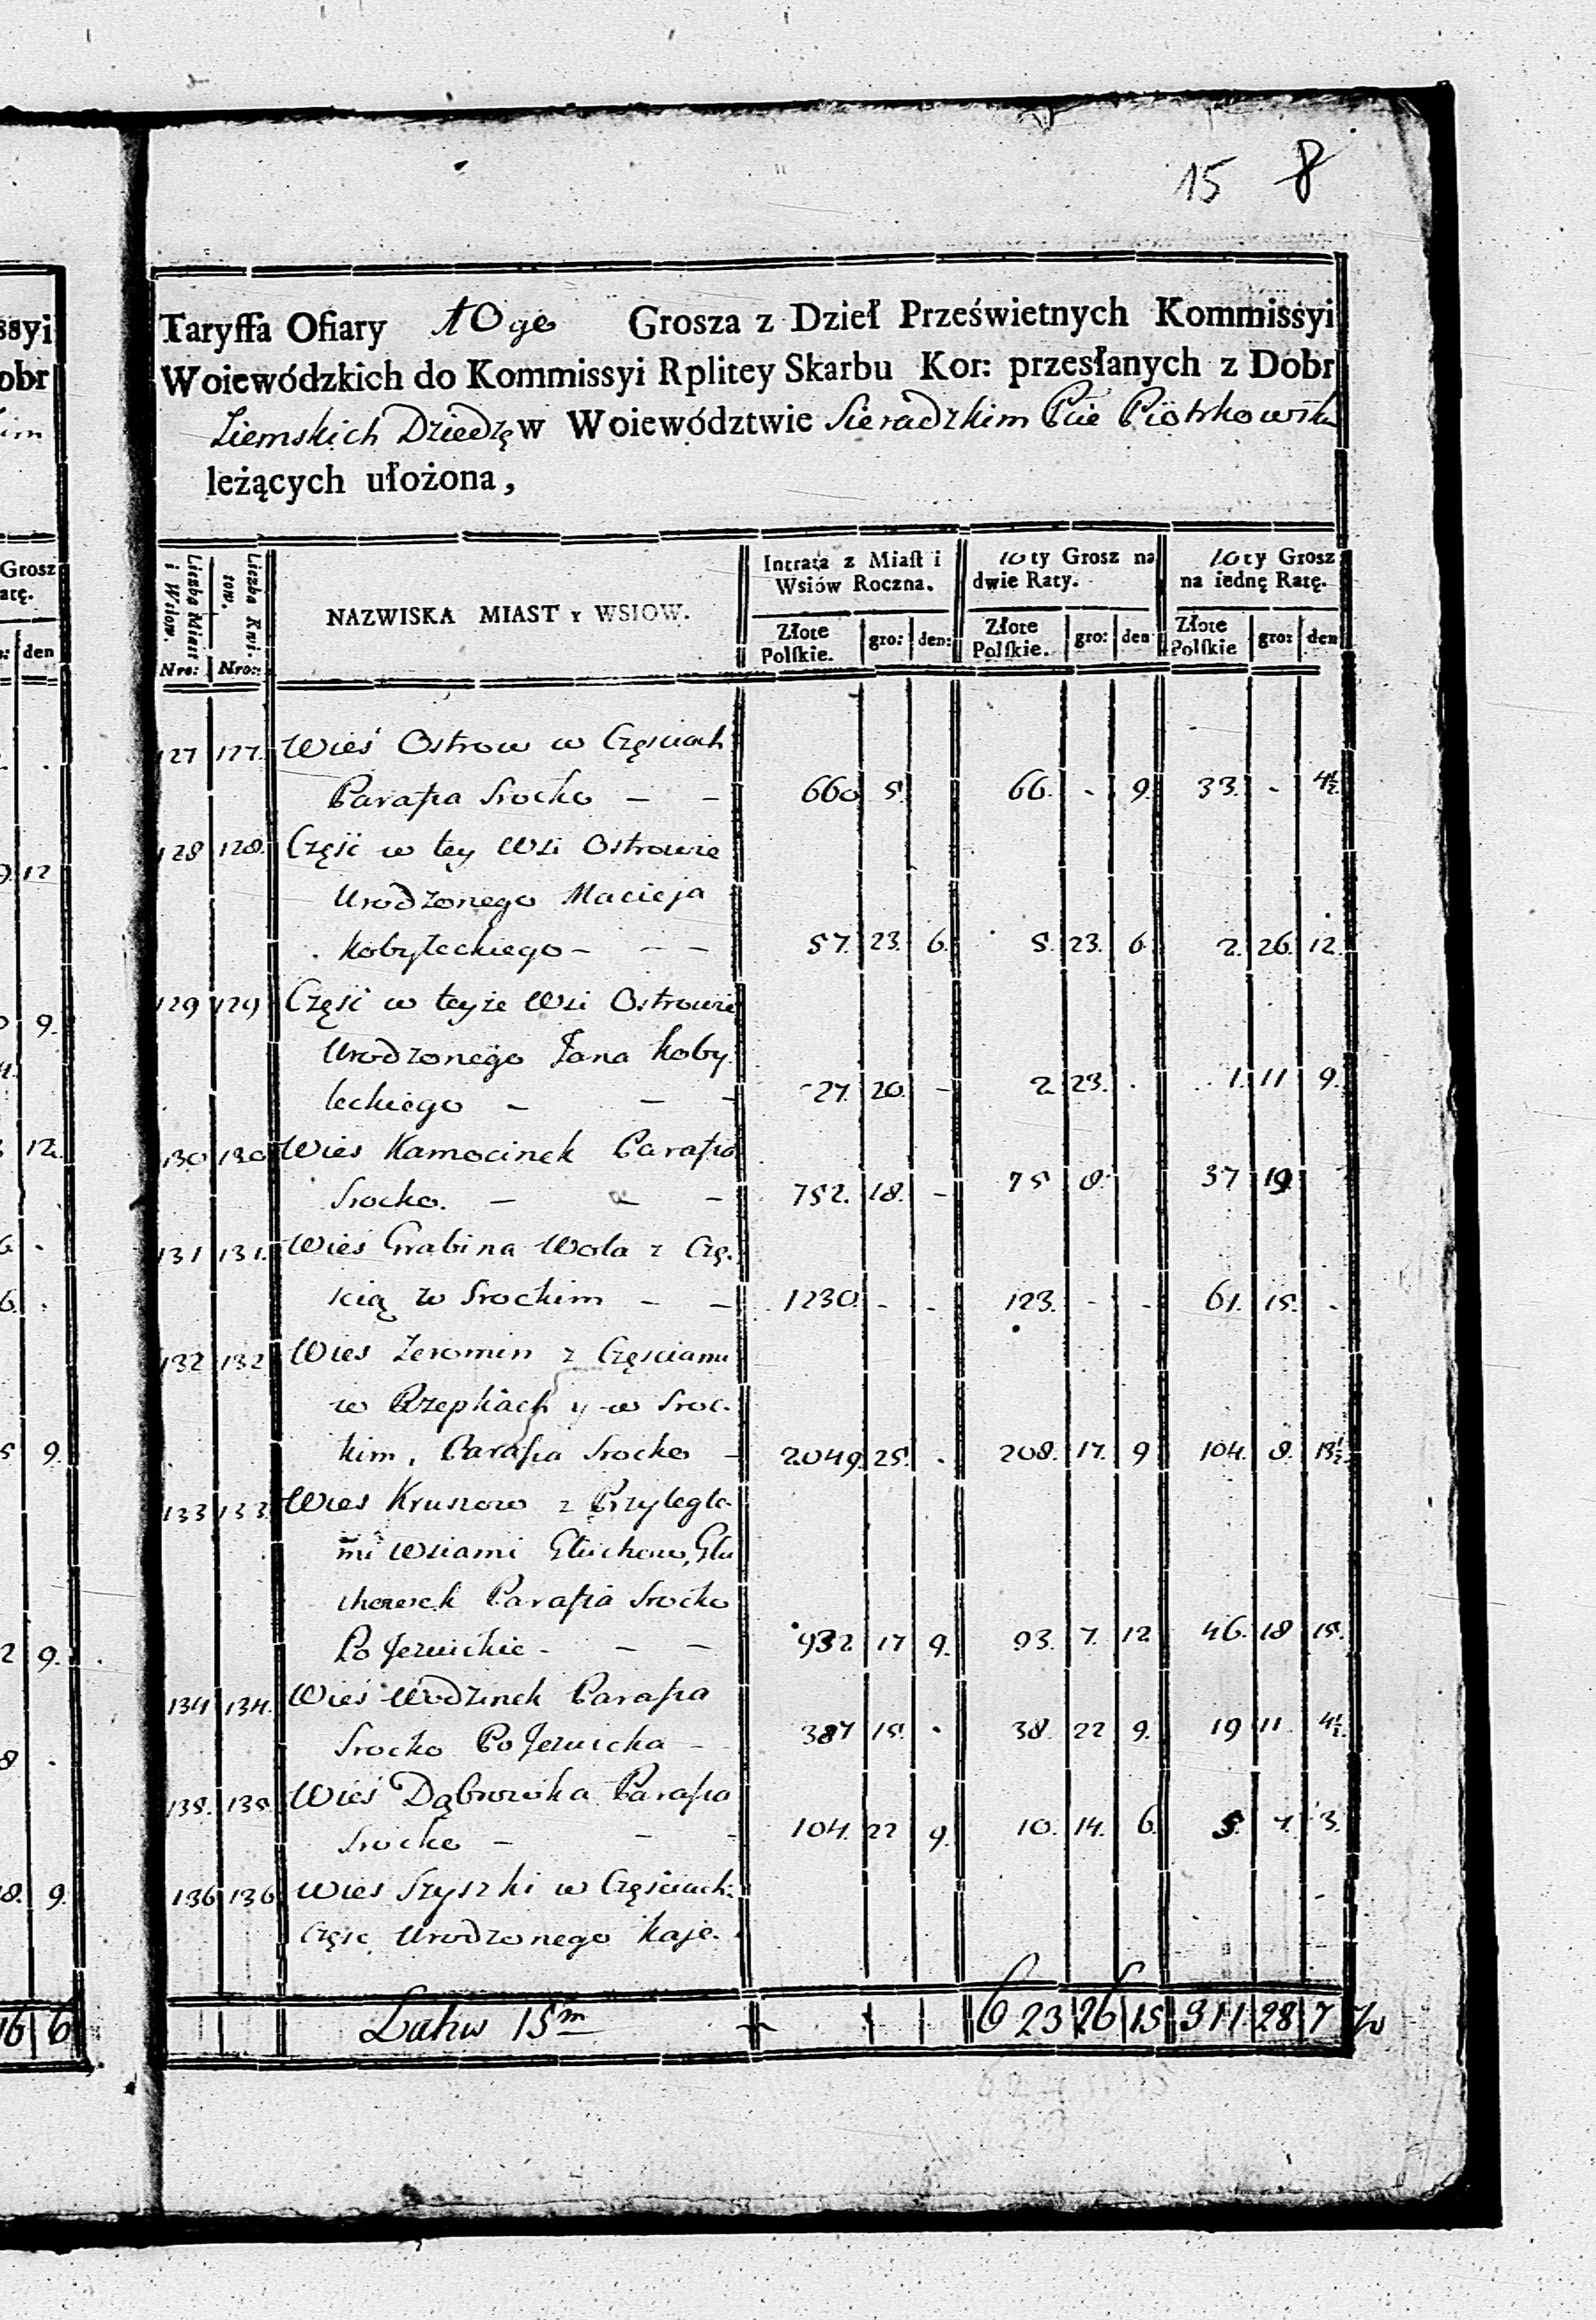 15 8
Taryffa Ofiary 10go Grosza z Dzieł Prześwietnych Kommissyi
Woiewódzkich do Kommissyi Rplitey Skarbu Kor: przesłanych z Dobr
Ziemskich Dziedz w Woiewództwie Sieradzkim Pcie Piotrkowsk
leżących ułożona,
Liczba Miast i Wsiow. Liczba Kwi- tow. NAZWISKA MIAST Y WSIOW. Intrata z Miast i Wsiów Roczna. 10ty Grosz na dwie Raty. 10ty Grosz na iednę Ratę.
Nro: Nro: Złote Polskie. gro: den: Złote Polskie. gro: den Złote Polskie gro: den
127 127. Wieś Ostrow w Częsciach
Parafia Srocko – – 660 5. 66. - 9. 33. - 4½
128 128. Część w tey Wsi Ostrowie
Urodzonego Macieja
Kobyłeckiego – – – 57. 23. 6. 5. 23. 6 2. 26. 12.
129 129 Część w teyże Wsi Ostrowie
Urodzonego Jana Koby
łeckiego – – – 27. 20. – 2 23. . 1. 11 9.
130 130 Wies Kamocinek Parafia
Srocko. – – – 752. 18. – 75 8. 37 19
131 131. Wies Grabina Wola z Czę.
scią w Srockim – – 1230. - - 123. - - 61. 15. -
132 132 Wies Zeromin z Częsciami
w Rzepkach y w Sroc.
kim, Parafia Srocko – 2049. 25. . 208. 17. 9 104. 8. 13½
133 133 Wies Kruszow z Przyległe
mi Wsiami Głuchow, Głu
chowek Parafia Srocko
PoJezuickie – – – 932 17 9. 93. 7. 12 46. 18 15.
134 134. Wieś Wodzinek Parafia
Srocko PoJezuicka – 387 15. . 38. 22 9. 19 11 4½
135. 135 Wieś Dąbrowka Parafia
Srocko – – – 104. 22 9. 10. 14. 6. 5. 7. 3.
136 136 Wies Szyszki w Częściach:
Częsc Urodzonego Kaje.
Latus 15m 623 26 15 311 28 7 ½